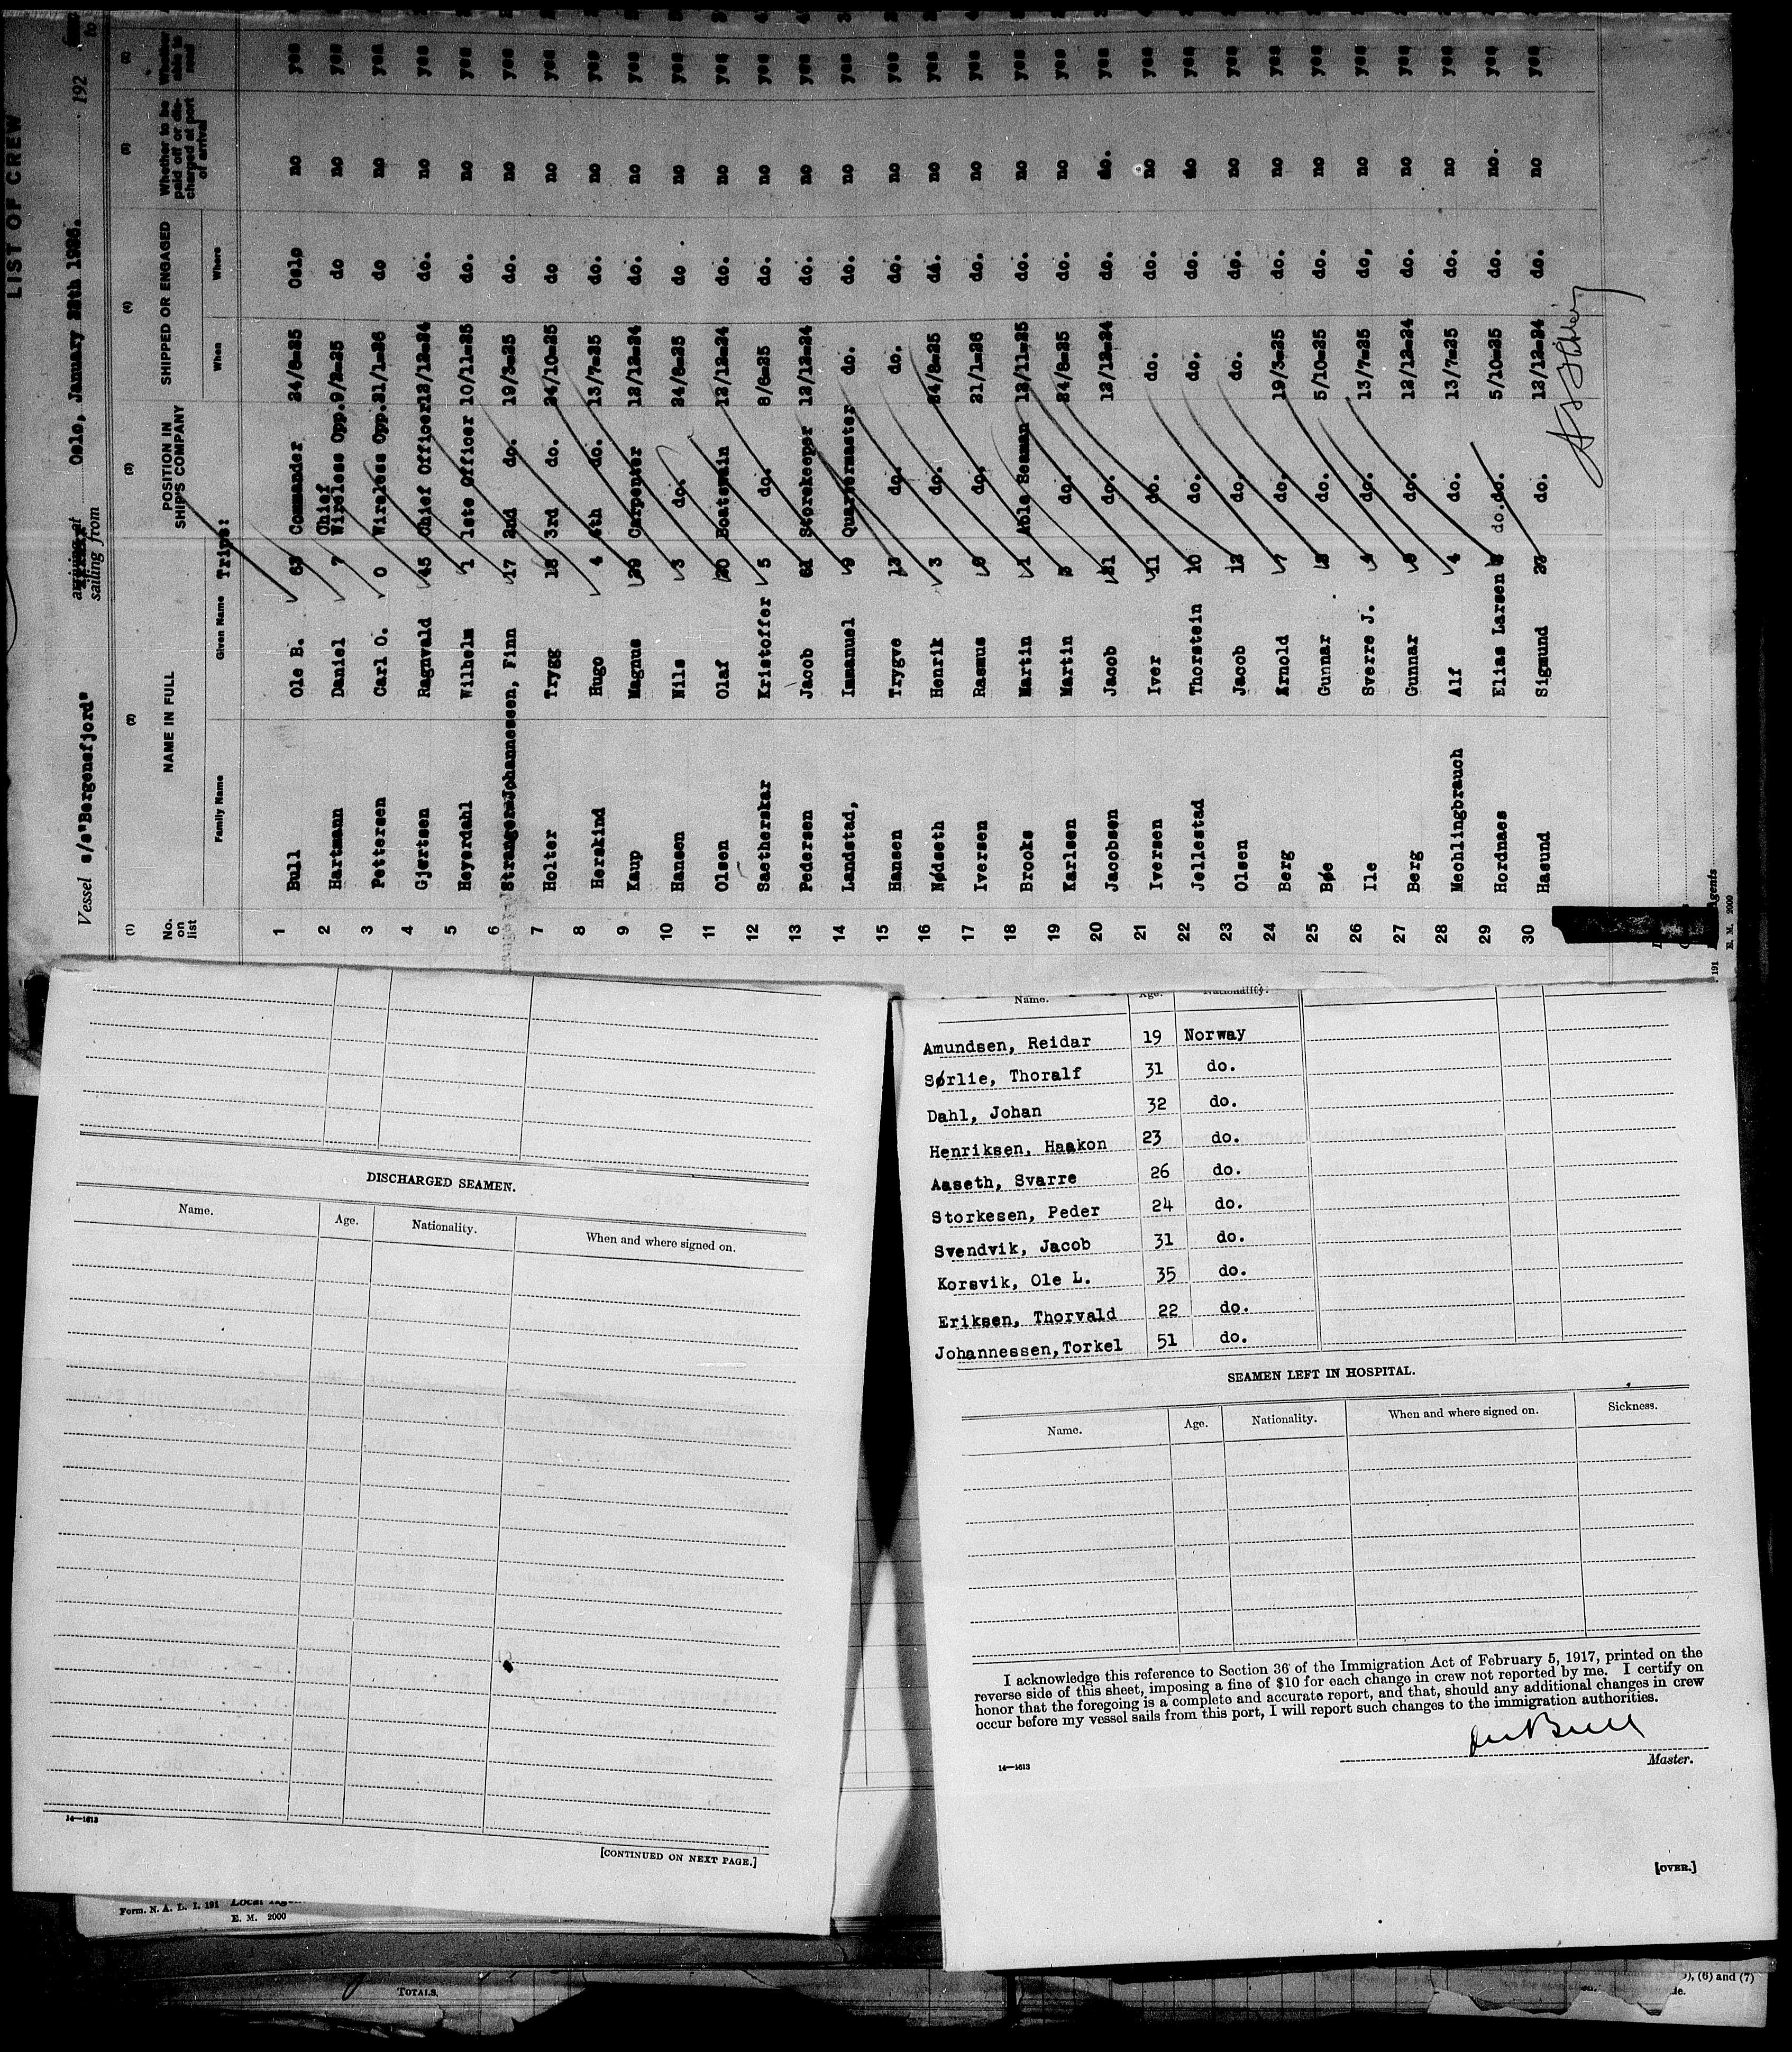 LIST OF CREW
Vessel s/s"Bergensfjord" arriving at sailing from Oslo, January 192
(1) (2) (3) (4) (5)
No. on list NAME IN FULL POSITION IN SHIP'S COMPANY SHIPPED OR ENGAGED Whether to be paid off or discharged at port of arrival Whether able to read
Family Name Given Name Trips: When Where
1 Bull Ole B. Commander 24/8-25 Oslo no yes
2 Hartmann Daniel 7 Chief Wireless Opp. 9/2-25 do no yes
3 Pettersen Carl O. 0 Wireless Opp. 21/1-26 do no yes
4 Gjertsen Ragnvald 45 Chief Officer 12/12-24 do. no yes
5 Heyerdahl Wilhelm 1 1ste Officer 10/11-25 do. no yes
6 Johannessen, Finn 17 2nd do. 19/3-25 do. no yes
7 Holter Trygg 3rd do. 24/10-25 do no yes
8 Herskind Hugo 4 4th do. 13/7-25 do. no yes
9 Kaup Magnus Carpenter 12/12-24 do. no yes
10 Hansen Nils 3 do. 24/8-25 do no yes
11 Olsen Olaf 20 Boatswain 12/12-24 do. no yes
12 Saetherskar Kristoffer 5 do. 8/6-25 do. no yes
13 Pedersen Jacob 61 Storekeeper 12/12-24 do. no yes
14 Landstad, Immanuel 9 Quartermaster do. do. no yes
15 Hansen Trygve 13 do. do. do. no yes
16 Nødseth Henrik 3 do. 24/8-25 do. no yes
17 Iversen Rasmus do. 21/1-26 do. no yes
18 Brooks Martin 1 Able Seaman 12/11-25 do. no yes
19 Karlsen Martin do. 24/8-25 do. no yes
20 Jacobsen Jacob do. 12/12-24 do. do. yes
21 Iversen Iver 11 do. do. do. no yes
22 Jellestad Thorstein 10 do. do. do. do yes
23 Olsen Jacob 12 do. do. do. no yes
24 Berg Arnold 7 do. 19/3-25 do. no yes
25 Bøe Gunnar do. 5/10-25 do. no yes
26 Ile Sverre J. 4 do. 13/7-25 do, no yes
27 Berg Gunnar do. 12/12-24 do. no yes
28 Mechlingbrauch Alf 4 do. 13/7-25 do. no yes
29 Hordnaes Elias Larsen do.do. 5/10-25 do. no. yes
30 Hasund Sigmund do. 12/12-24 do. no yes
Agents
191 E. M. 2000
DISCHARGED SEAMEN.
Name. Age. Nationality. When and where signed on.
14—1613
[CONTINUED ON NEXT PAGE.]
Form. N. A. L. I. 191
E. M. 2000
TOTALS.
Name. Age. Nationality.
Amundsen, Reidar 19 Norway
Sørlie, Thoralf 31 do.
Dahl, Johan 32 do.
Henriksen, Haakon 23 do.
Aaseth, Svarre 26 do.
Storkesen, Peder 24 do.
Svendvik, Jacob 31 do.
Korsvik, Ole L. 35 do.
Eriksen, Thorvald 22 do.
Johannessen,Torkel 51 do.
SEAMEN LEFT IN HOSPITAL.
Name. Age. Nationality. When and where signed on. Sickness.
I acknowledge this reference to Section 36 of the Immigration Act of February 5, 1917, printed on the
reverse side of this sheet, imposing a fine of $10 for each change in crew not reported by me. I certify on
honor that the foregoing is a complete and accurate report, and that, should any additional changes in crew
occur before my vessel sails from this port, I will report such changes to the immigration authorities.
Bull
Master.
14—1613
[OVER.]
(6) and (7)